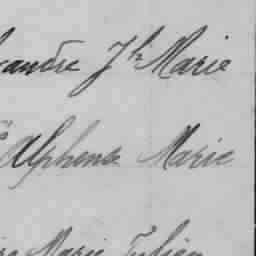 xandre Jh Marie
Alphonse Marie
Marie Julien